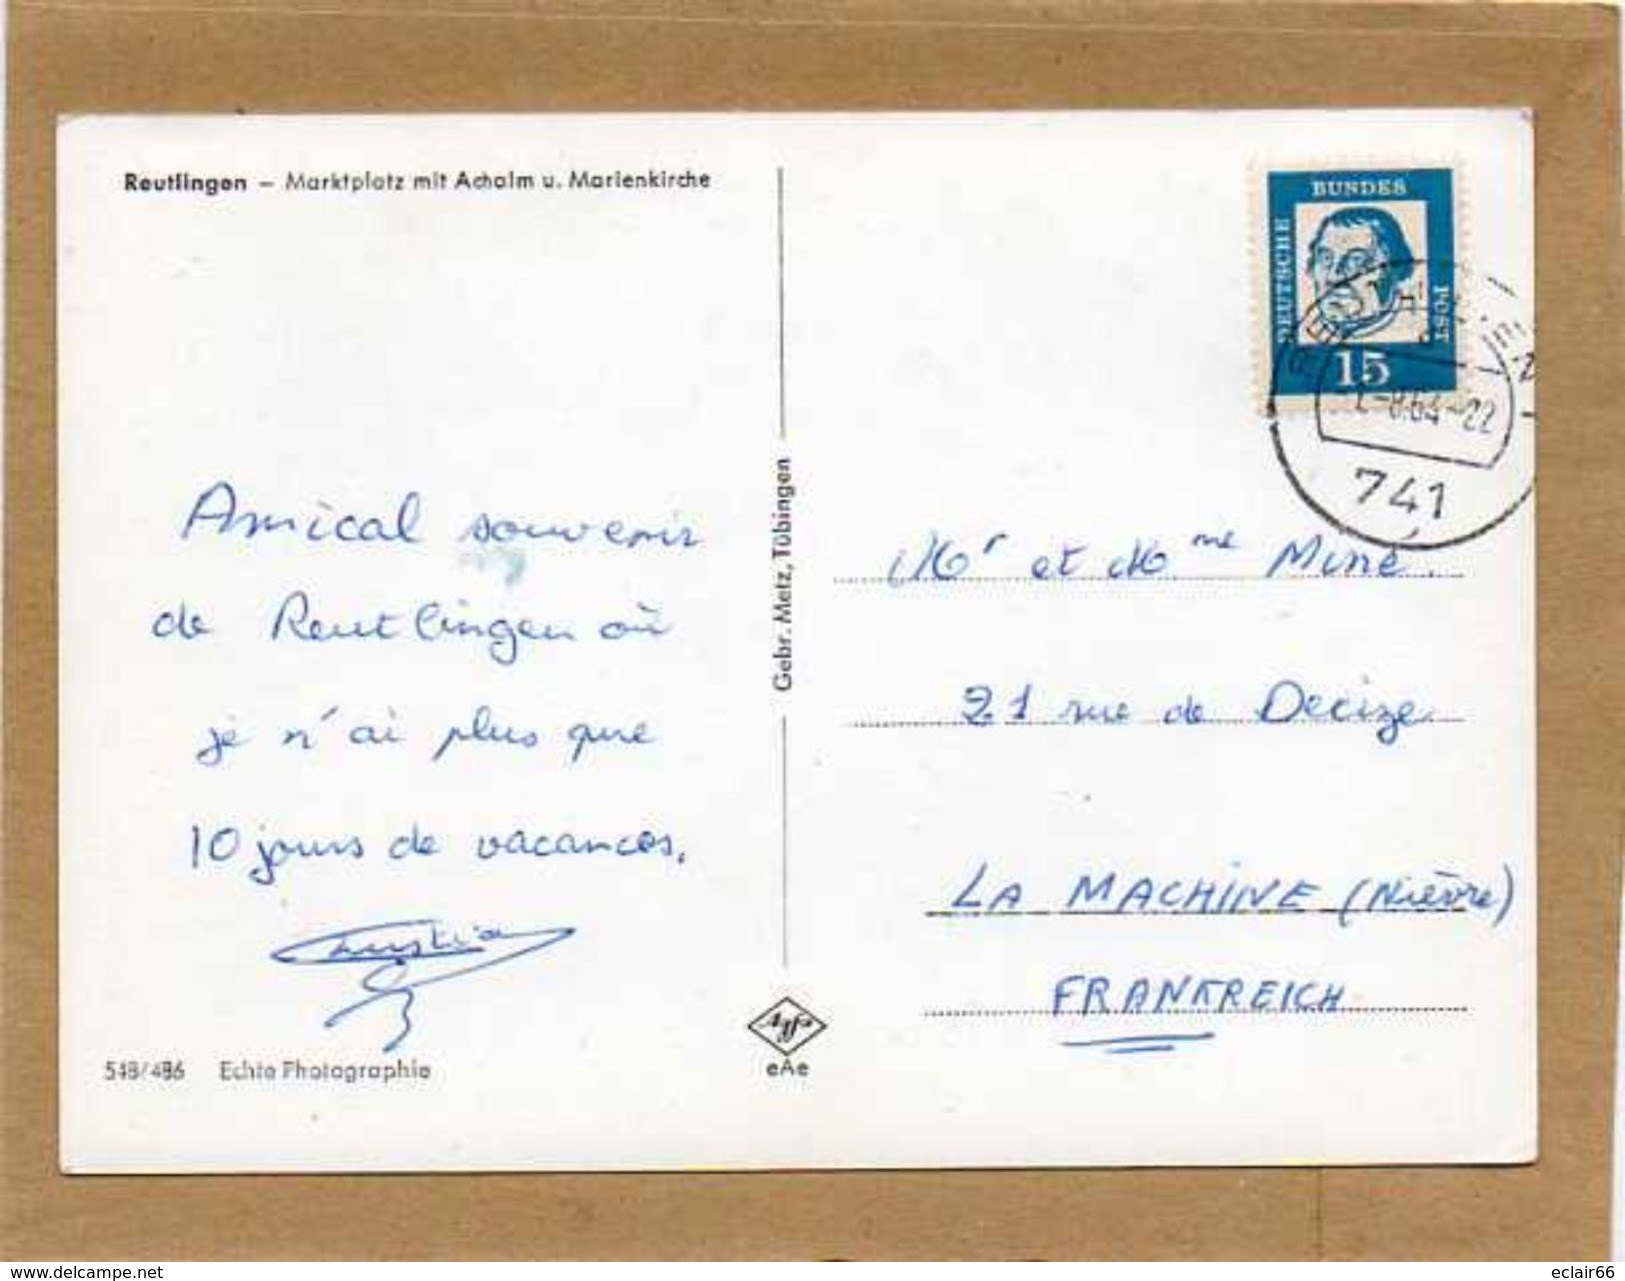 Reutlingen – Marktplatz mit Achalm u. Marienkirche
Amical souvenir
de Reutlingen où
je n'ai plus que
10 jours de vacances.
548/486 Echte Photographie
Gebr. Metz, Tübingen
Agfa
eAe
DEUTSCHE
BUNDES
POST
15
64-22
741
Mr et Mme Miné.
21 rue de Decize
LA MACHINE (Nièvre)
FRANKREICH
www.delcampe.net
eclair66